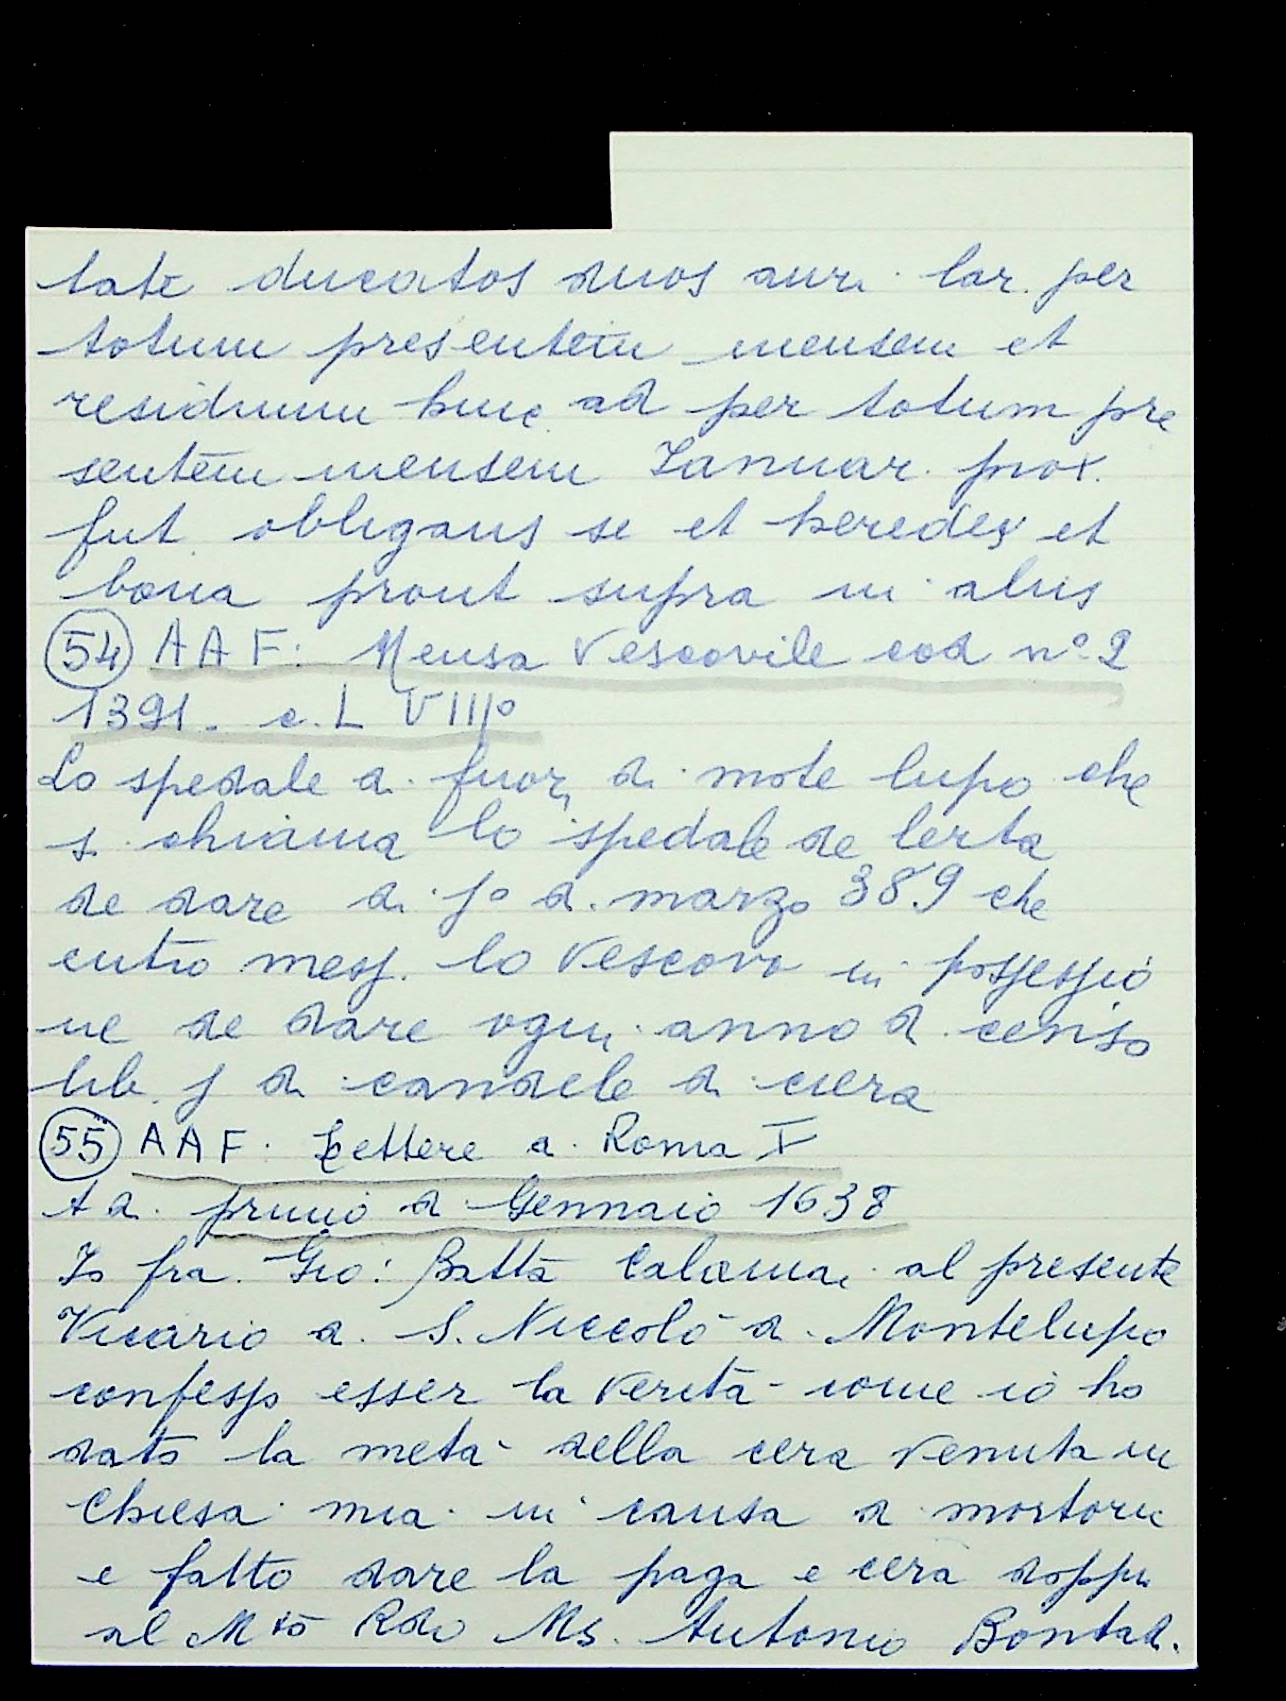 tate ducatos duos auri lar. per
totum presentem mensem et
residuum huc ad per totum pre
sentem mensem Januar. prox.
fut. obligans se et heredes et
bona prout supra in aliis
54 AAF: Mensa Vescovile cod n° 2
1391. c. L VIIII°
Lo spedale di fuori di mote lupo che
si chiama lo spedale de lerta
de dare di j° di marzo 389 che
entro mess. lo Vescovo in possessio
ne de dare ogni anno di censo
lib. j di candele di cera
55 AAF: Lettere a Roma V
A di primo di Gennaio 1638
Io fra. Gio: Batta Calamai al presente
Vicario a S. Niccolò a Montelupo
confesso esser la verità come io ho
dato la metà della cera venuta in
Chiesa mia in causa di mortorii
e fatto dare la paga e cera doppi
al Mto Rdo Ms. Antonio Bontad.